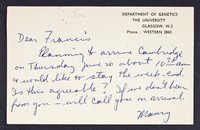 DEPARTMENT OF GENETICS
THE UNIVERSITY
GLASGOW, W.2
Phone : WESTERN 2865
Dear Francis
Planning to arrive Cambridge
on Thursday June 20 about 10:30 am
& would like to stay the week-end.
Is this agreeable? If we don't hear
from you – will call you on arrival.